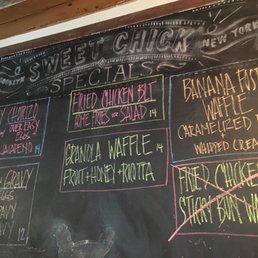 SWEET CHICK
NEW YORK
SPECIALS
CHORIZO
OVER EASY
EGGS
JALAPEÑO 14
GRAVY
EGGS
GRAVY
12
FRIED CHICKEN BLT
HOME FRIES OR SALAD 14
GRANOLA WAFFLE 14
FRUIT + HONEY + RICOTTA
BANANA
WAFFLE
CARAMELIZED
WHIPPED CREAM
FRIED CHICKEN
STICKY BUN